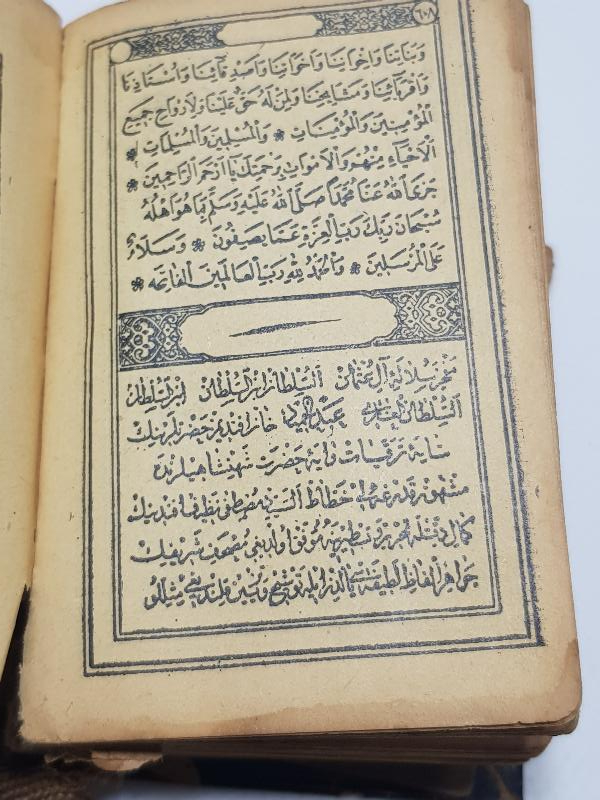 ٦٠٨
وَبَنَاتِنَا وَاَخَوَاتِنَا وَاَصْدِقَائِنَا وَاُسْتَاذِنَا
وَاَقْرِبَائِنَا وَمَشَايِخِنَا وَلِمَنْ لَهُ حَقٌّ عَلَيْنَا وَلِاَرْوَاحِ جَمِيعِ
الْمُؤْمِنِينَ وَالْمُؤْمِنَاتِ ❋ وَالْمُسْلِمِينَ وَالْمُسْلِمَاتِ ❋
اَلْاَحْيَاءِ مِنْهُمْ وَالْاَمْوَاتِ بِرَحْمَتِكَ يَا اَرْحَمَ الرَّاحِمِينَ ❋
جَزَى اللهُ عَنَّا مُحَمَّدًا صَلَّى اللهُ عَلَيْهِ وَسَلَّمَ بِمَا هُوَ اَهْلُهُ
سُبْحَانَ رَبِّكَ رَبِّ الْعِزَّةِ عَمَّا يَصِفُونَ ❋ وَسَلَامٌ
عَلَى الْمُرْسَلِينَ ❋ وَالْحَمْدُ لِلّهِ رَبِّ الْعَالَمِينَ الْفَاتِحَه ❋
آل عثمان السلطان ابن السلطان ابن السلطان
السلطان الغازى عبد الحميد خان افندمز حضرتلرينك
سايۀ ترقيات وايۀ حضرت شهنشاهيلرنده
خطاط السيد مصطفى نظيف افندينك
كمال دقتله تحرير و تنظيمنه موفق اولديغى مصحف شريفك
جواهر الفاظ لطيفه سى